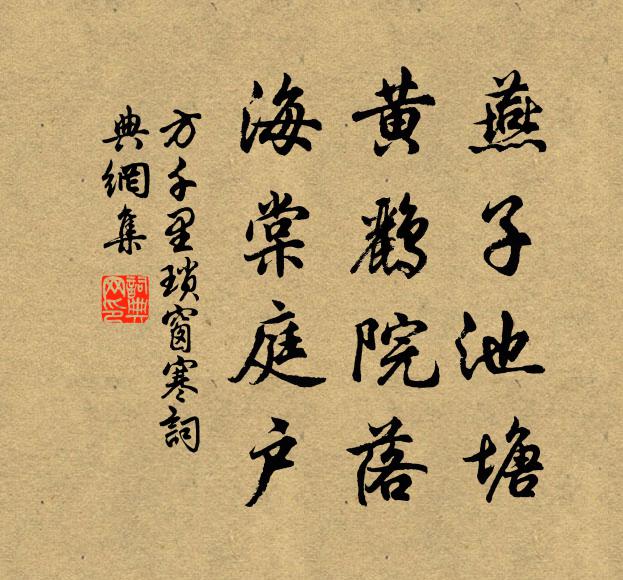 燕子池塘
黄鸝院落
海棠庭户
方千里瑣窗寒詞
典網集
詞典
网印